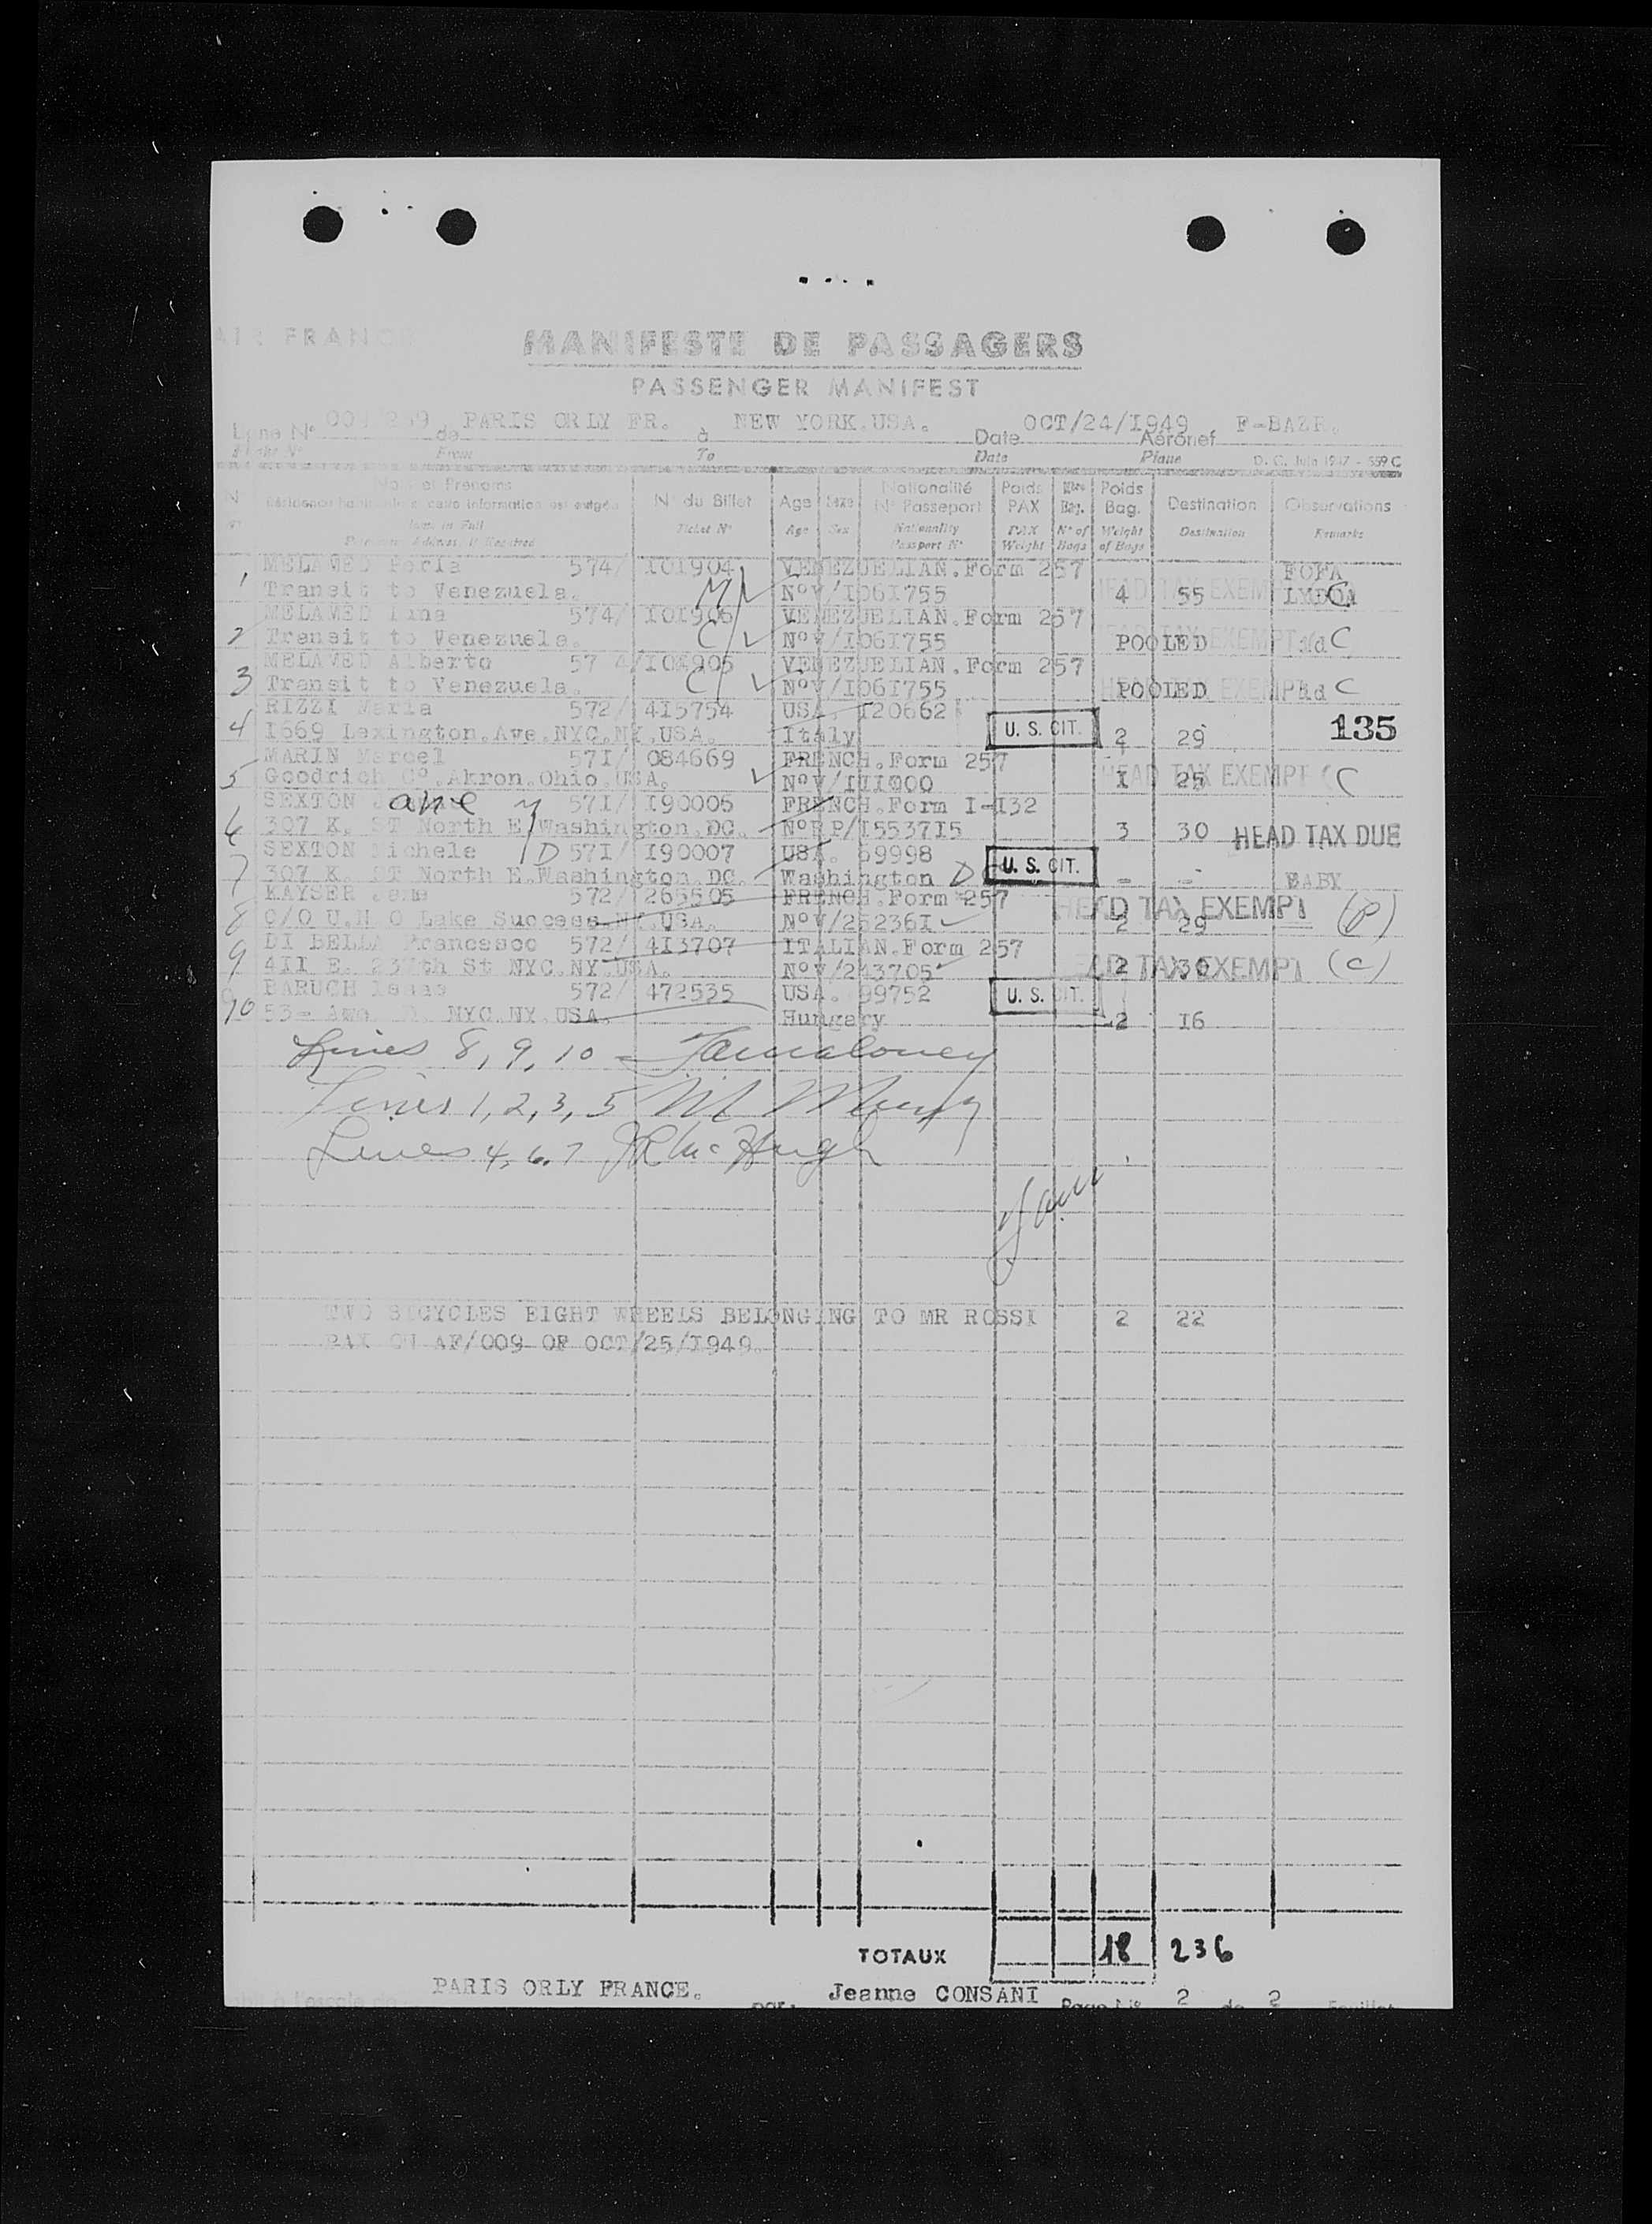 AIR FRANCE
MANIFESTE DE PASSAGERS
PASSENGER MANIFEST
Ligne N° 009 de PARIS ORLY FR. à NEW YORK.USA. Date OCT/24/I949 Aéronef F-BAZR.
From To Date Plane D. C. Julo 1947 - 559 C
N° Nom et Prénoms N° du Billet Age Sexe Nationalité N° Passeport Poids PAX Nbre Bag. Poids Bag. Destination Observations
Name in Full Ticket N° Age Sex Nationality Passport N° PAX Weight N° of Bags Weight of Bags Destination Remarks
1 MELAMED Perla 574/ I0I904 VENEZUELIAN.Form 257 FOFA
Transit to Venezuela. N°V/I06I755 4 55 HEAD TAX EXEMPT LYDDA C
2 MELAMED 574/ I0I906 VENEZUELIAN.Form 257
Transit to Venezuela. C N°V/I06I755 POOLED HEAD TAX EXEMPT C
3 MELAMED Alberto 57 4/I0I905 VENEZUELIAN.Form 257
Transit to Venezuela. C N°V/I06I755 POOLED HEAD TAX EXEMPT C
4 RIZZI Maria 572/ 4I5754 USA. I20662
I669 Lexington.Ave.NYC.NY.USA. Italy U. S. CIT. 2 29 135
5 MARIN Marcel 57I/ 084669 FRENCH.Form 257
Goodrich C°.Akron.Ohio.USA. N°V/III000 I 25 HEAD TAX EXEMPT C
6 SEXTON ane 57I/ I90006 FRENCH.Form I-I32
307 K. ST North E.Washington.DC. N°R P/I5537I5 3 30 HEAD TAX DUE
7 SEXTON Michele D 57I/ I90007 USA. 69998
307 K. ST North E.Washington.DC. Washington D U. S. CIT. - - BABY
8 KAYSER 572/ 265505 FRENCH.Form 257
C/O U.N O Lake Success.NY.USA. N°V/25236I 2 29 HEAD TAX EXEMPT (P)
9 DI BELLA Francesco 572/ 4I3707 ITALIAN.Form 257
4II E. 237th St NYC.NY.USA. N°V/243705 2 30 HEAD TAX EXEMPT (C)
10 BARUCH Isaac 572/ 472535 USA. 99752 U. S. CIT.
53- Ave NYC.NY.USA. Hungary 2 I6
Lines 8, 9, 10 -
Lines 1, 2, 3, 5
Lines 4, 6, 7 McHugh
TWO BICYCLES EIGHT WHEELS BELONGING TO MR ROSSI 2 22
PAX ON AF/009 OF OCT/25/I949.
TOTAUX 18 236
PARIS ORLY FRANCE. par. Jeanne CONSANI Page N° 2 de 2 Feuillet